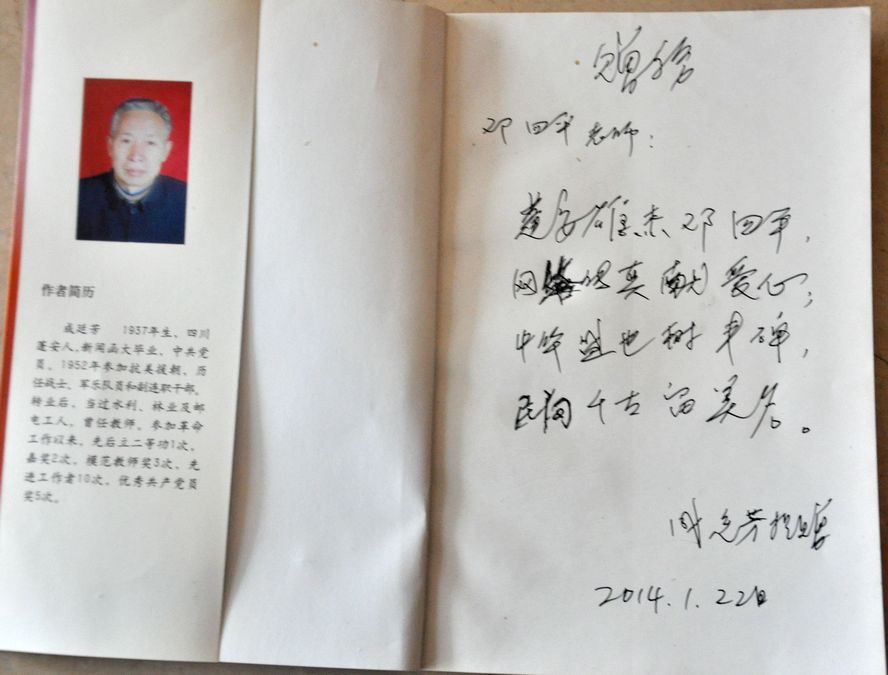 作者简历
成廷芳 1937年生，四川
蓬安人，新闻函大毕业，中共党
员，1952年参加抗美援朝，历
任战士、军乐队员和副连职干部。
转业后，当过水利、林业及邮
电工人，曾任教师。参加革命
工作以来，先后立二等功1次，
嘉奖2次，模范教师奖3次，先
进工作者10次，优秀共产党员
奖5次。
赠给
邓四平老师：
蓬安雄杰邓四平，
网 真献爱心；
中华盛世树丰碑，
民间千古留美名。
成廷芳 赠
2014.1.22日